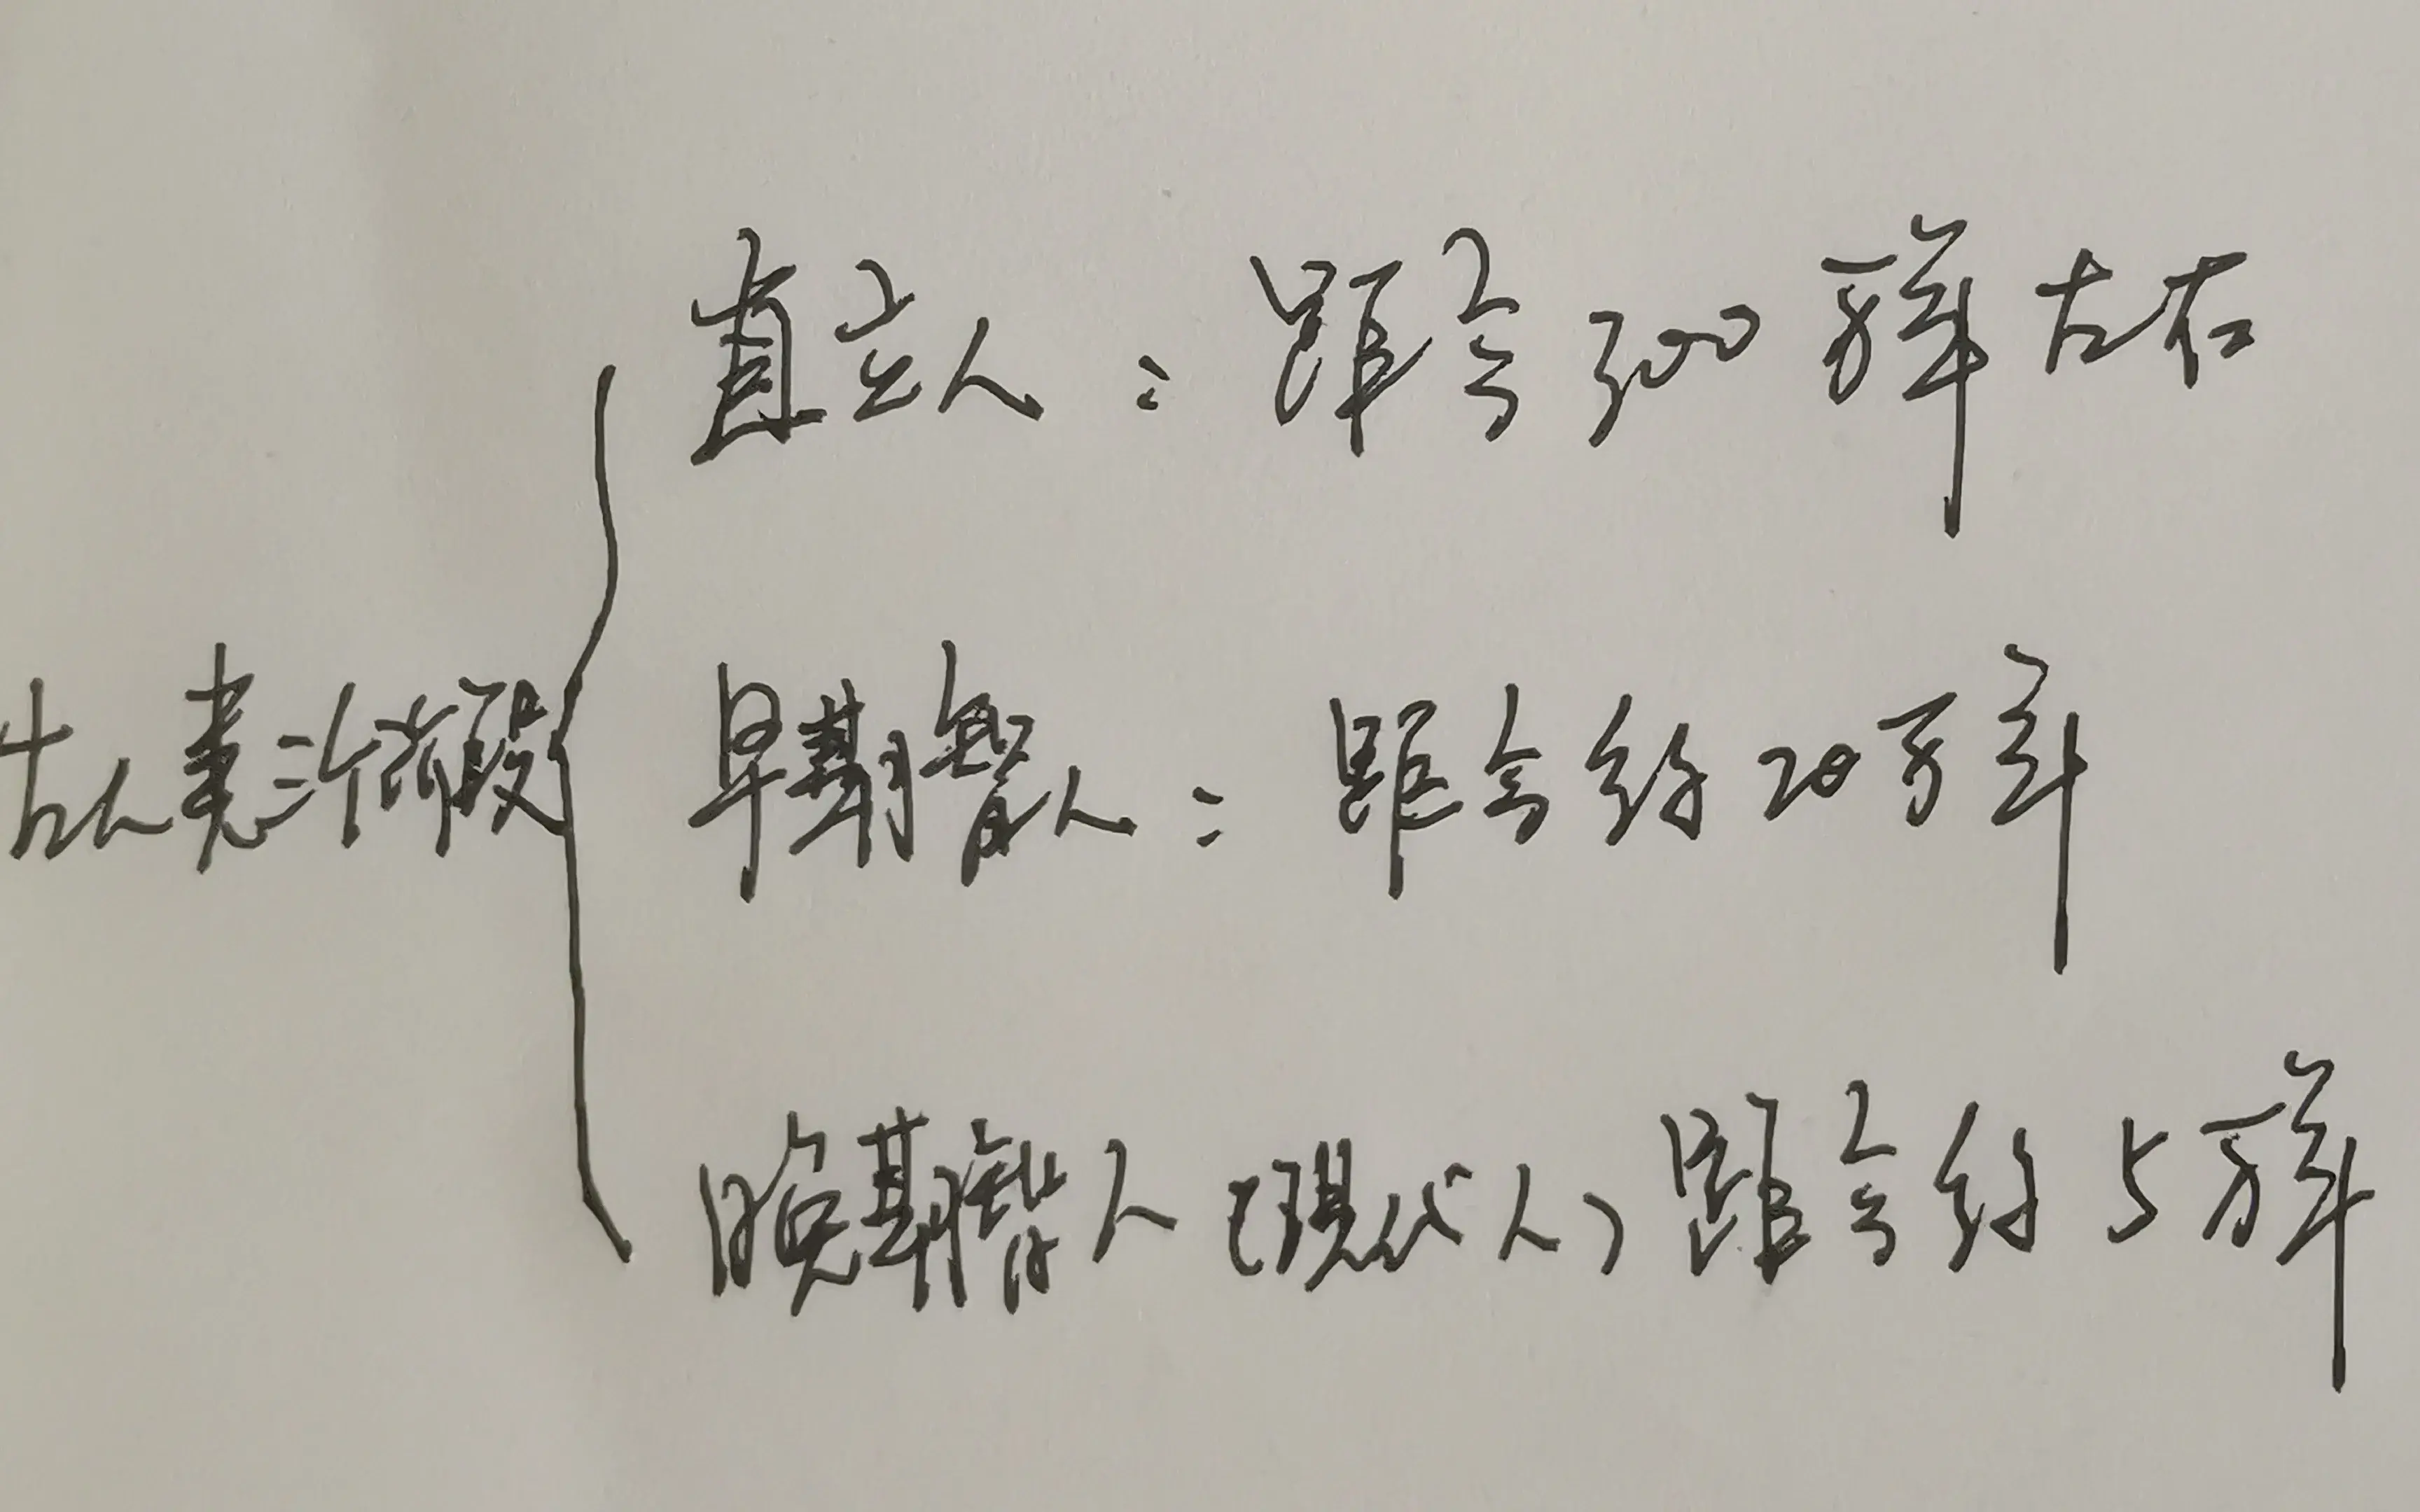 古人类三个阶段
直立人：距今300万年左右
早期智人：距今约20万年
晚期智人（现代人）距今约5万年